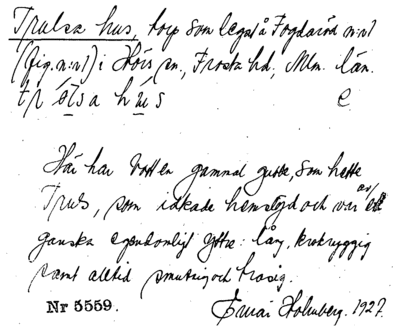 Trulsa hus, torp som legat å Fogdaröd n:o1
(fig. n:o1) i Hörs sn, Frosta hd, Mlm. län.
Här har bott en gammal gubbe, som hette
Truls, som idkade hemslöjd och var av
ganska egendomligt yttre: lång, krokryggig
samt alltid smutsig och trasig.
Nr 5559. Holmberg. 1927.